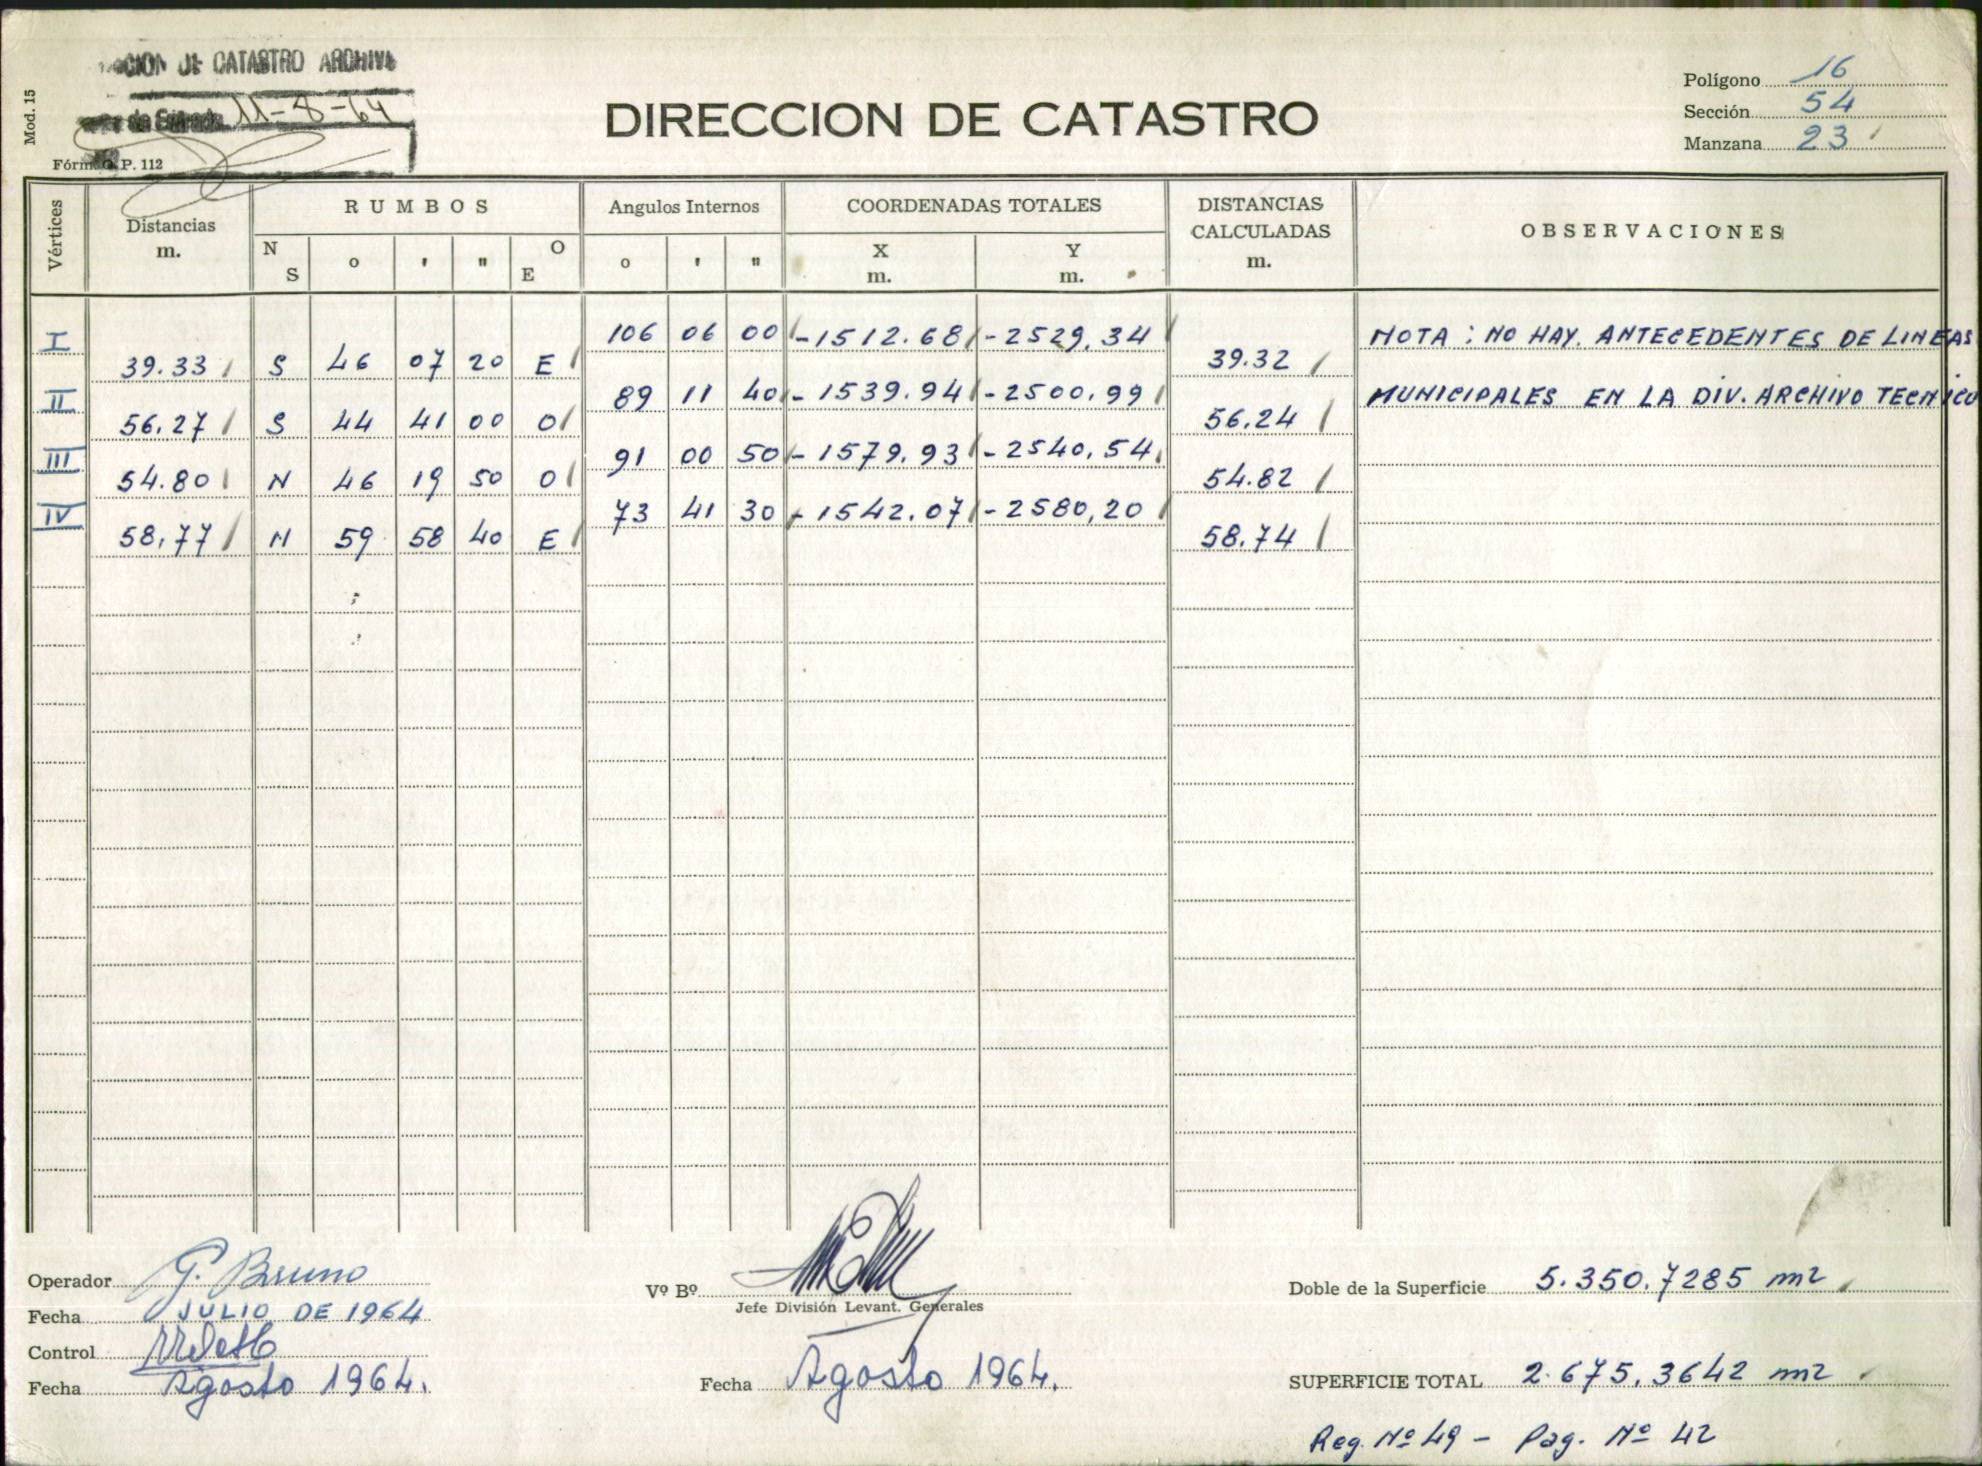 CATASTRO ARCHIVO
de Entrada 11-8-64
Mod. 15
Fórm. O. P. 112
DIRECCION DE CATASTRO
Polígono 16
Sección 54
Manzana 23
Vértices Distancias m. RUMBOS Angulos Internos COORDENADAS TOTALES DISTANCIAS CALCULADAS m. OBSERVACIONES
N S o ' " O E o ' " X m. Y m.
I 106 06 00 -1512.68 -2529.34 NOTA: NO HAY. ANTECEDENTES DE LINEAS
39.33 S 46 07 20 E 39.32
II 89 11 40 -1539.94 -2500.99 MUNICIPALES EN LA DIV. ARCHIVO TECNICO
56.27 S 44 41 00 O 56.24
III 91 00 50 -1579.93 -2540.54
54.80 N 46 19 50 O 54.82
IV 73 41 30 -1542.07 -2580,20
58.77 N 59 58 40 E 58.74
Operador G. Bruno
Fecha JULIO DE 1964
Control
Fecha Agosto 1964.
Vº Bº
Jefe División Levant. Generales
Fecha Agosto 1964.
Doble de la Superficie 5.350.7285 m2
SUPERFICIE TOTAL 2.675.3642 m2
Reg. Nº 49 - Pag. Nº 42